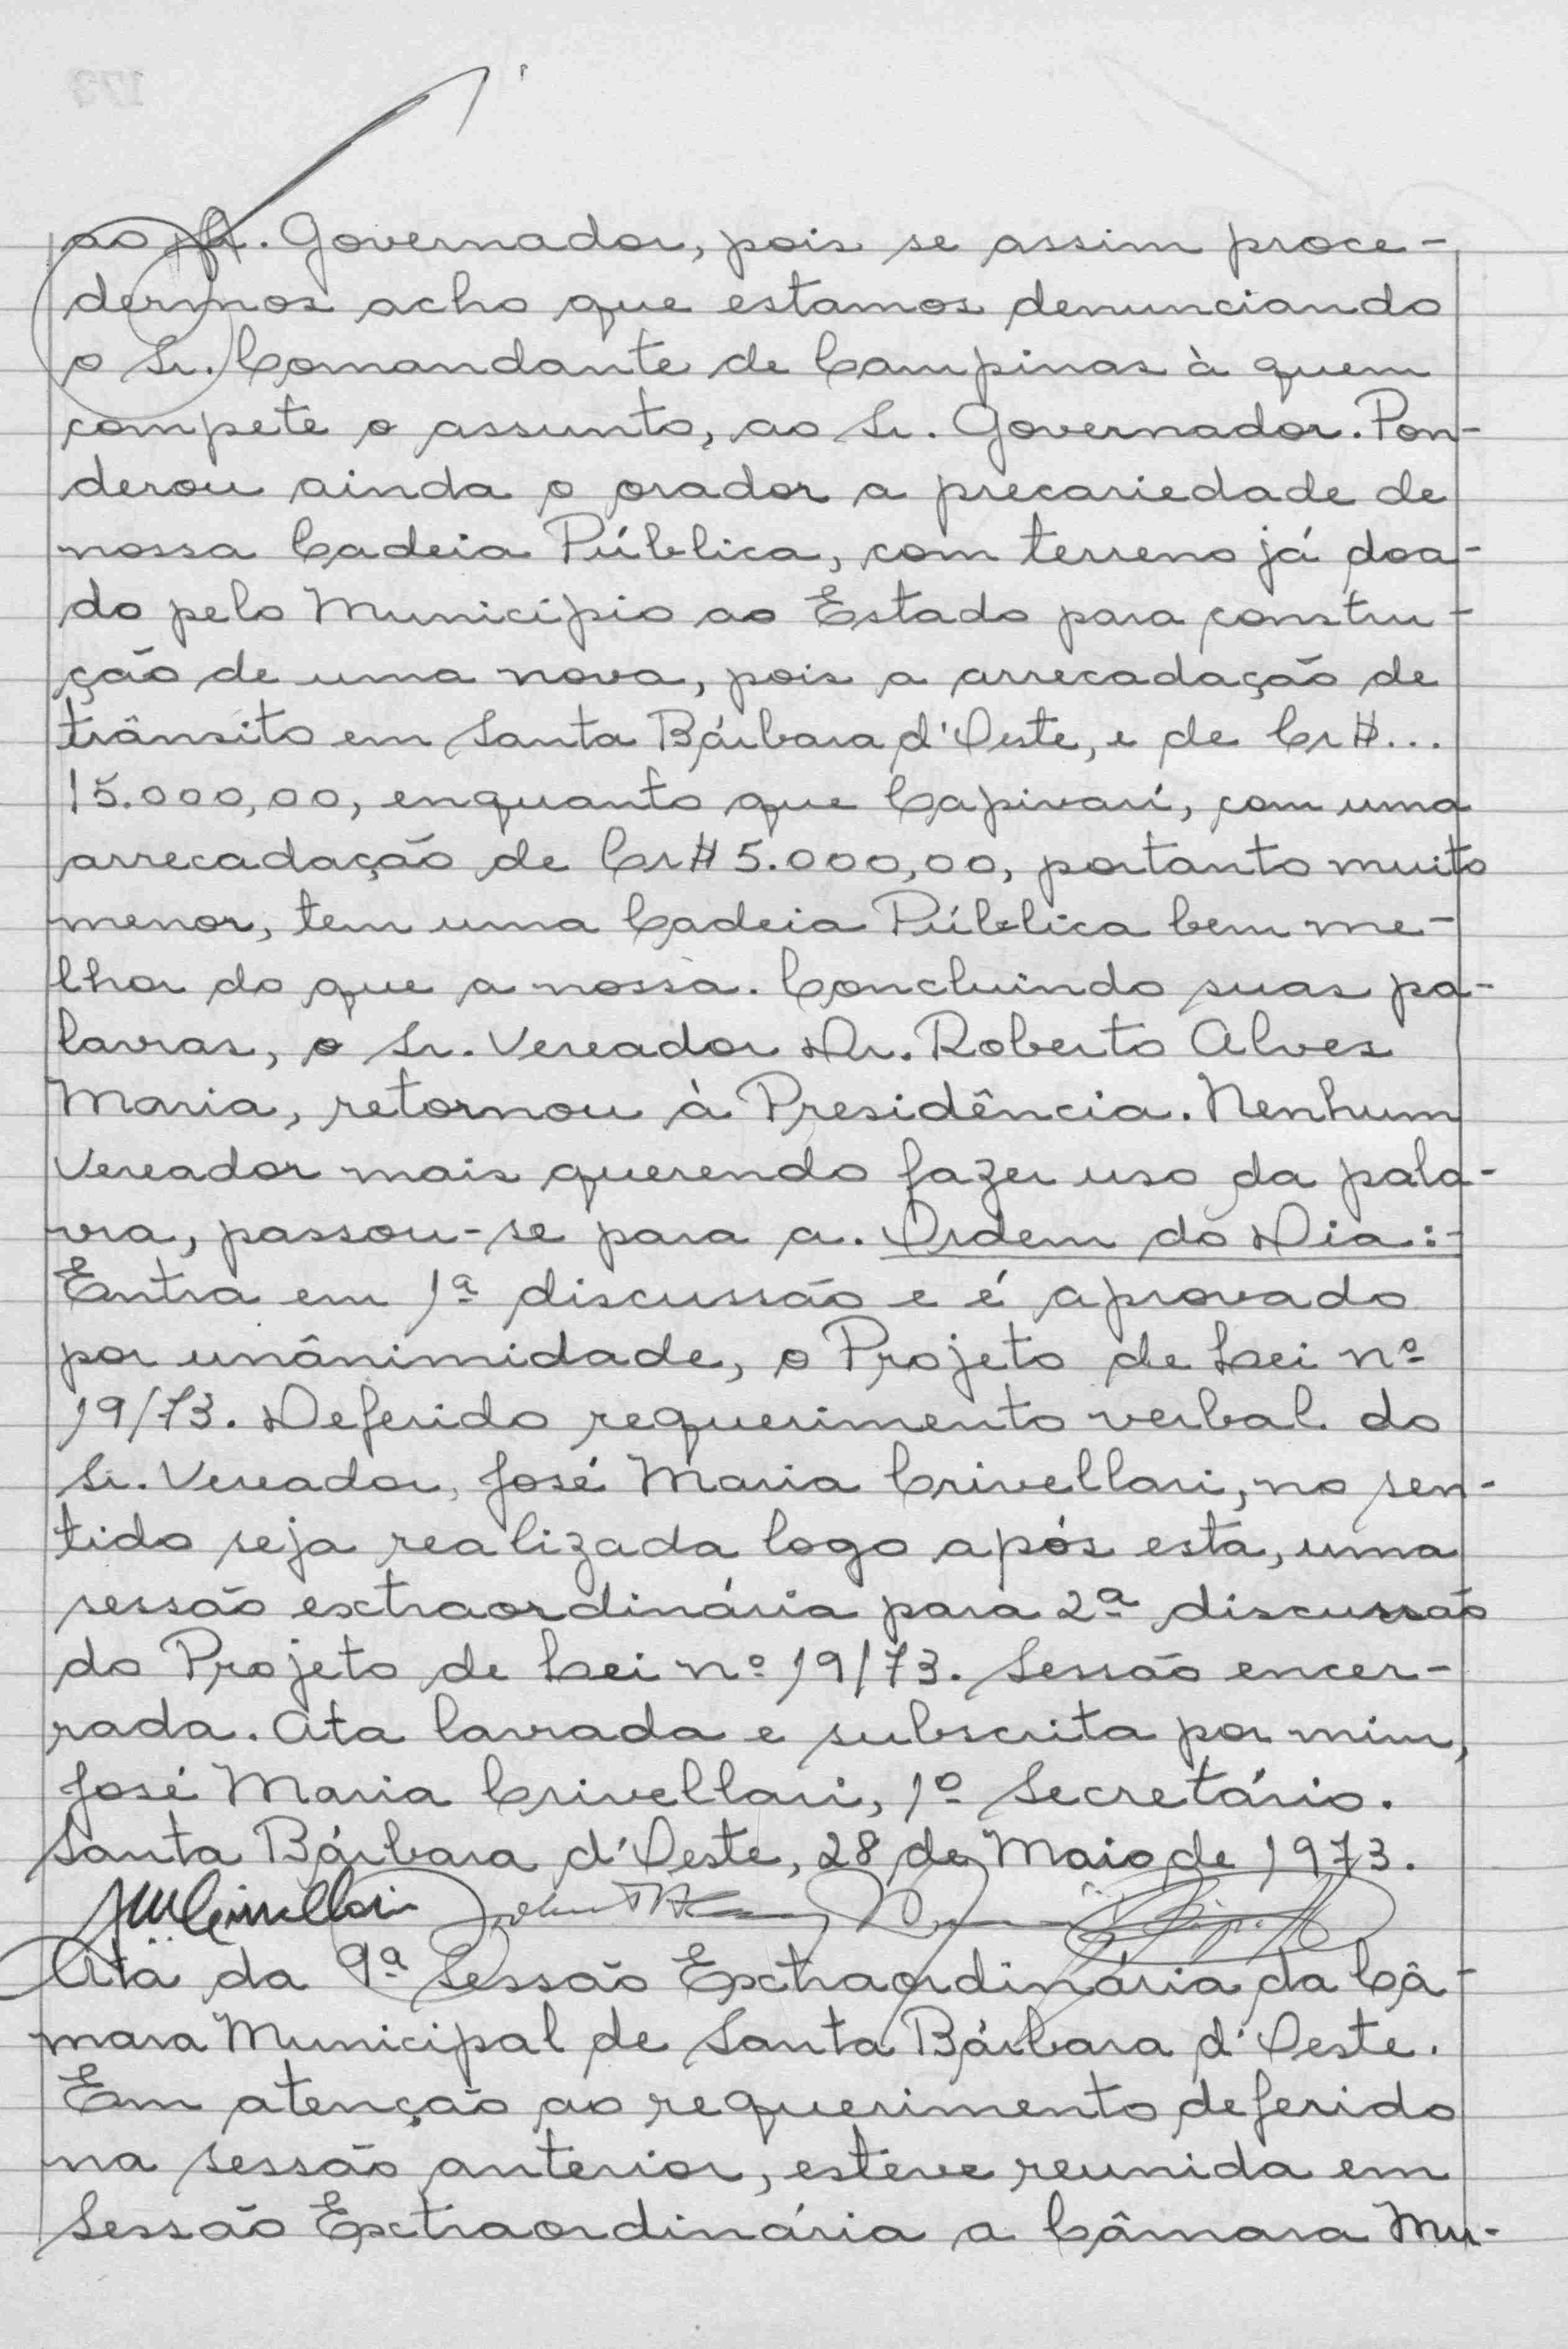 ao Sr. Governador, pois se assim proce-
dermos acho que estamos denunciando
o Sr. Comandante de Campinas à quem
compete o assunto, ao Sr. Governador. Pon-
derou ainda o orador a precariedade de
nossa Cadeia Pública, com terreno já doa-
do pelo Município ao Estado para constru-
ção de uma nova, pois a arrecadação de
trânsito em Santa Bárbara d'Oeste, e de Cr$...
15.000,00, enquanto que Capivarí, com uma
arrecadação de Cr$ 5.000,00, portanto muito
menor, tem uma Cadeia Pública bem me-
lhor do que a nossa. Concluindo suas pa-
lavras, o Sr. Vereador Dr. Roberto Alves
Maria, retornou à Presidência. Nenhum
Vereador mais querendo fazer uso da pala-
vra, passou-se para a. Ordem do Dia:-
Entra em 1ª discussão e é aprovado
por unânimidade, o Projeto de Lei nº
19/73. Deferido requerimento verbal do
Sr. Vereador, José Maria Crivellari, no sen-
tido seja realizada logo após esta, uma
sessão extraordinária para 2ª discussão
do Projeto de Lei nº 19/73. Sessão encer-
rada. Ata lavrada e subscrita por mim,
José Maria Crivellari, 1º Secretário.
Santa Bárbara d'Oeste, 28 de Maio de 1973.
JMCrivellari
Ata da 9ª Sessão Extraordinária da Câ-
mara Municipal de Santa Bárbara d'Oeste.
Em atenção ao requerimento deferido
na sessão anterior, esteve reunida em
Sessão Extraordinária a Câmara Mu-